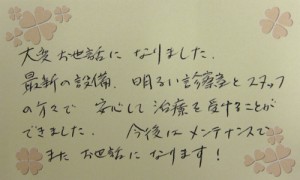 大変お世話になりました.
最新の設備、明るい診療室とスタッフ
の方々で 安心して治療を受けることが
できました. 今後はメンテナンスで
またお世話になります!